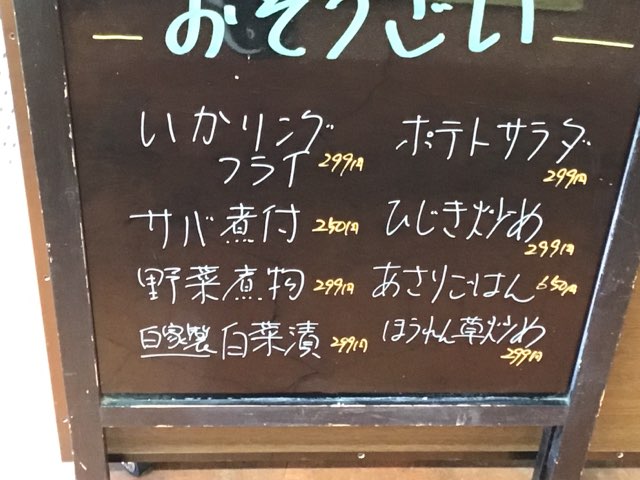 おそうざい
いかリング
フライ 299円
サバ煮付 250円
野菜煮物 299円
自家製白菜漬 299円
ポテトサラダ
299円
ひじき炒め
299円
あさりごはん 650円
ほうれん草炒め
299円